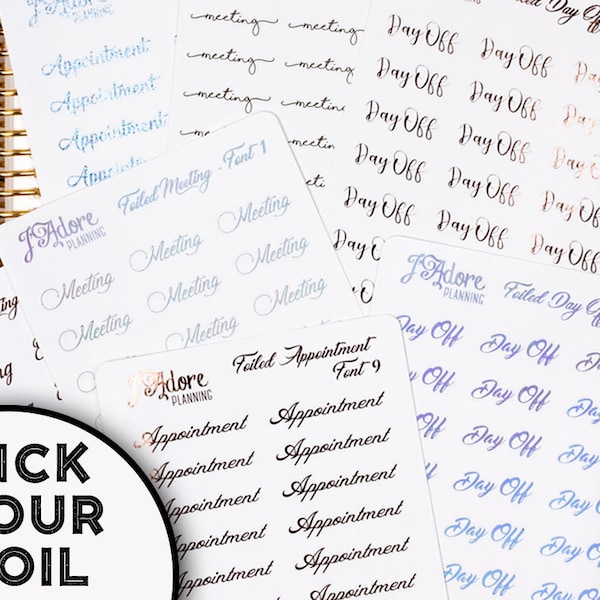 J'Adore
Appointment
Appointment
Appointment
meeting meeting
meeting meeting
meeting
meeting
Day Off
Day Off Day Off Day
Day Off Day Off Day
Day Off Day Off Day Off
Day Off Day Off Day Off
Day Off Day Off Day Off
Day Off
J'Adore
PLANNING
Foiled Meeting - Font 1
Meeting Meeting Meeting
Meeting Meeting Meeting
Meeting Meeting Meeting
J'Adore
PLANNING
Foiled Day Off
Day Off Day Off
Day Off Day Off Day
Day Off Day Off Day
Day Off Day Off
Day Off Day Off
Day Off Day Off
Day Off
J'Adore
PLANNING
Foiled Appointment
Font 9
Appointment Appointment
Appointment Appointment
Appointment Appointment
Appointment Appointment
Appointment Appointment
Appointment
ICK
OUR
OIL